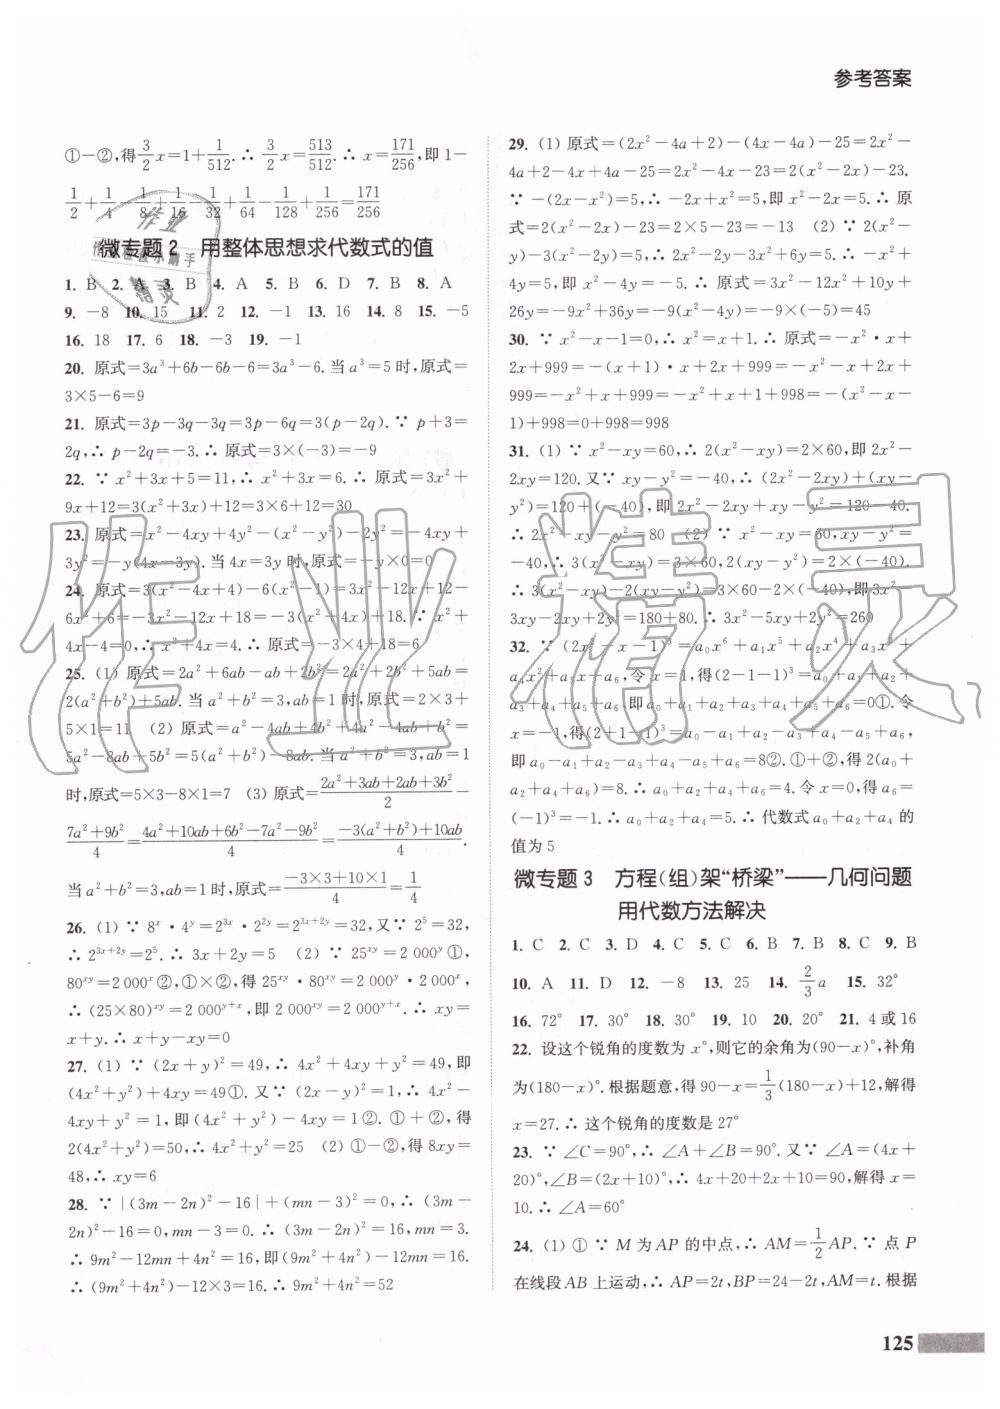 参考答案
①－②,得3/2x＝1＋1/512.∴ 3/2x＝513/512.∴ x＝171/256,即1－
1/2＋1/4－1/8＋1/16－1/32＋1/64－1/128＋1/256＝171/256
微专题2 用整体思想求代数式的值
1. B 2. A 3. B 4. A 5. B 6. D 7. B 8. A
9. －8 10. 15 11. 2 12. －1 13. 16 14. 8 15. －5
16. 18 17. 6 18. －3 19. －1
20. 原式＝3a³＋6b－6b－6＝3a³－6.当a³＝5时,原式＝
3×5－6＝9
21. 原式＝3p－3q－3q＝3p－6q＝3(p－2q).∵ p＋3＝
2q,∴ p－2q＝－3.∴ 原式＝3×(－3)＝－9
22. ∵ x²＋3x＋5＝11,∴ x²＋3x＝6.∴ 原式＝3x²＋
9x＋12＝3(x²＋3x)＋12＝3×6＋12＝30
23. 原式＝x²－4xy＋4y²－(x²－y²)－2y²＝－4xy＋
3y²＝－y(4x－3y).当4x＝3y时,原式＝－y×0＝0
24. 原式＝3(x²－4x＋4)－6(x²－1)＝3x²－12x＋12－
6x²＋6＝－3x²－12x＋18＝－3(x²＋4x)＋18.∵ x²＋
4x－4＝0,∴ x²＋4x＝4.∴ 原式＝－3×4＋18＝6
25. (1) 原式＝2a²＋6ab－ab＋2b²＝2a²＋2b²＋5ab＝
2(a²＋b²)＋5ab.当a²＋b²＝3,ab＝1时,原式＝2×3＋
5×1＝11 (2) 原式＝a²－4ab＋4b²＋4a²－4ab＋b²＝
5a²－8ab＋5b²＝5(a²＋b²)－8ab.当a²＋b²＝3,ab＝1
时,原式＝5×3－8×1＝7 (3) 原式＝(2a²＋2ab＋3b²)/2－
(7a²＋9b²)/4＝(4a²＋10ab＋6b²－7a²－9b²)/4＝(－3(a²＋b²)＋10ab)/4.
当a²＋b²＝3,ab＝1时,原式＝(－3×3＋10×1)/4＝1/4
26. (1) ∵ 8ˣ·4ʸ＝2³ˣ·2²ʸ＝2³ˣ⁺²ʸ＝32,又∵ 2⁵＝32,
∴ 2³ˣ⁺²ʸ＝2⁵.∴ 3x＋2y＝5 (2) ∵ 25ˣʸ＝2 000ʸ①,
80ˣʸ＝2 000ˣ②,①×②,得25ˣʸ·80ˣʸ＝2 000ʸ·2 000ˣ,
∴ (25×80)ˣʸ＝2 000ʸ⁺ˣ,即2 000ˣʸ＝2 000ʸ⁺ˣ.∴ xy＝
x＋y.∴ x＋y－xy＝0
27. (1) ∵ (2x＋y)²＝49,∴ 4x²＋4xy＋y²＝49,即
(4x²＋y²)＋4xy＝49①.又∵ (2x－y)²＝1,∴ 4x²－
4xy＋y²＝1,即(4x²＋y²)－4xy＝1②.①＋②,得
2(4x²＋y²)＝50,∴ 4x²＋y²＝25 (2) ①－②,得8xy＝
48,∴ xy＝6
28. ∵ |(3m－2n)²－16|＋(mn－3)²＝0,∴ (3m－
2n)²－16＝0,mn－3＝0.∴ (3m－2n)²＝16,mn＝3.
∴ 9m²－12mn＋4n²＝16,即(9m²＋4n²)－12mn＝16.
∴ (9m²＋4n²)－12×3＝16.∴ 9m²＋4n²＝52
29. (1) 原式＝(2x²－4a＋2)－(4x－4a)－25＝2x²－
4a＋2－4x＋4a－25＝2x²－4x－23＝2(x²－2x)－23.
∵ －(2x－x²)＝5,∴ －2x＋x²＝5,即x²－2x＝5.∴ 原
式＝2(x²－2x)－23＝2×5－23＝－13 (2) ∵ －x²－
3(－x²－2y)＋2(－x²－y)＝5,∴ －x²＋
4y＝5,即x²－4y＝－5.∴ 原式＝3x²－12x²＋10y＋
26y＝－9x²＋36y＝－9(x²－4y)＝－9×(－5)＝45
30. ∵ x²－x－1＝0,∴ x²＝x＋1.∴ 原式＝－x²·x＋
2x＋999＝－(x＋1)·x＋2x＋999＝－x²－x＋2x＋
999＝－x²＋x＋999＝－x²＋x＋1＋998＝－(x²－x－
1)＋998＝0＋998＝998
31. (1) ∵ x²－xy＝60,∴ 2(x²－xy)＝2×60,即2x²－
2xy＝120.又∵ xy－y²＝－40,∴ (2x²－2xy)＋(xy－
y²)＝120＋(－40),即2x²－2xy＋xy－y²＝120－40.
∴ 2x²－xy－y²＝80 (2) ∵ x²－xy＝60,xy－y²＝
－40,∴ 3(x²－xy)＝3×60,2(xy－y²)＝2×(－40).
∴ 3(x²－xy)－2(xy－y²)＝3×60－2×(－40),即3x²－
3xy－2xy＋2y²＝180＋80.∴ 3x²－5xy＋2y²＝260
32. ∵ (2x²－x－1)³＝a₀x⁶＋a₁x⁵＋a₂x⁴＋a₃x³＋
a₄x²＋a₅x＋a₆,令x＝1,得(2－1－1)³＝a₀＋a₁＋a₂＋
a₃＋a₄＋a₅＋a₆,即a₀＋a₁＋a₂＋a₃＋a₄＋a₅＋a₆＝0①.令
x＝－1,得(2＋1－1)³＝a₀－a₁＋a₂－a₃＋a₄－a₅＋a₆,
即a₀－a₁＋a₂－a₃＋a₄－a₅＋a₆＝8②.①＋②,得2(a₀＋
a₂＋a₄＋a₆)＝8.∴ a₀＋a₂＋a₄＋a₆＝4.令x＝0,得a₆＝
(－1)³＝－1.∴ a₀＋a₂＋a₄＝5.∴ 代数式a₀＋a₂＋a₄的
值为5
微专题3 方程(组)架“桥梁”——几何问题
用代数方法解决
1. C 2. C 3. D 4. C 5. C 6. B 7. B 8. C 9. B
10. A 11. D 12. －8 13. 25 14. 2/3a 15. 32°
16. 72° 17. 30° 18. 30° 19. 10 20. 20° 21. 4或16
22. 设这个锐角的度数为x°,则它的余角为(90－x)°,补角
为(180－x)°.根据题意,得90－x＝1/3(180－x)＋12,解得
x＝27.∴ 这个锐角的度数是27°
23. ∵ ∠C＝90°,∴ ∠A＋∠B＝90°.又∵ ∠A＝(4x＋
20)°,∠B＝(2x＋10)°,∴ 4x＋20＋2x＋10＝90,解得x＝
10.∴ ∠A＝60°
24. (1) ① ∵ M为AP的中点,∴ AM＝1/2AP.∵ 点P
在线段AB上运动,∴ AP＝2t,BP＝24－2t,AM＝t.根据
125
作业精灵